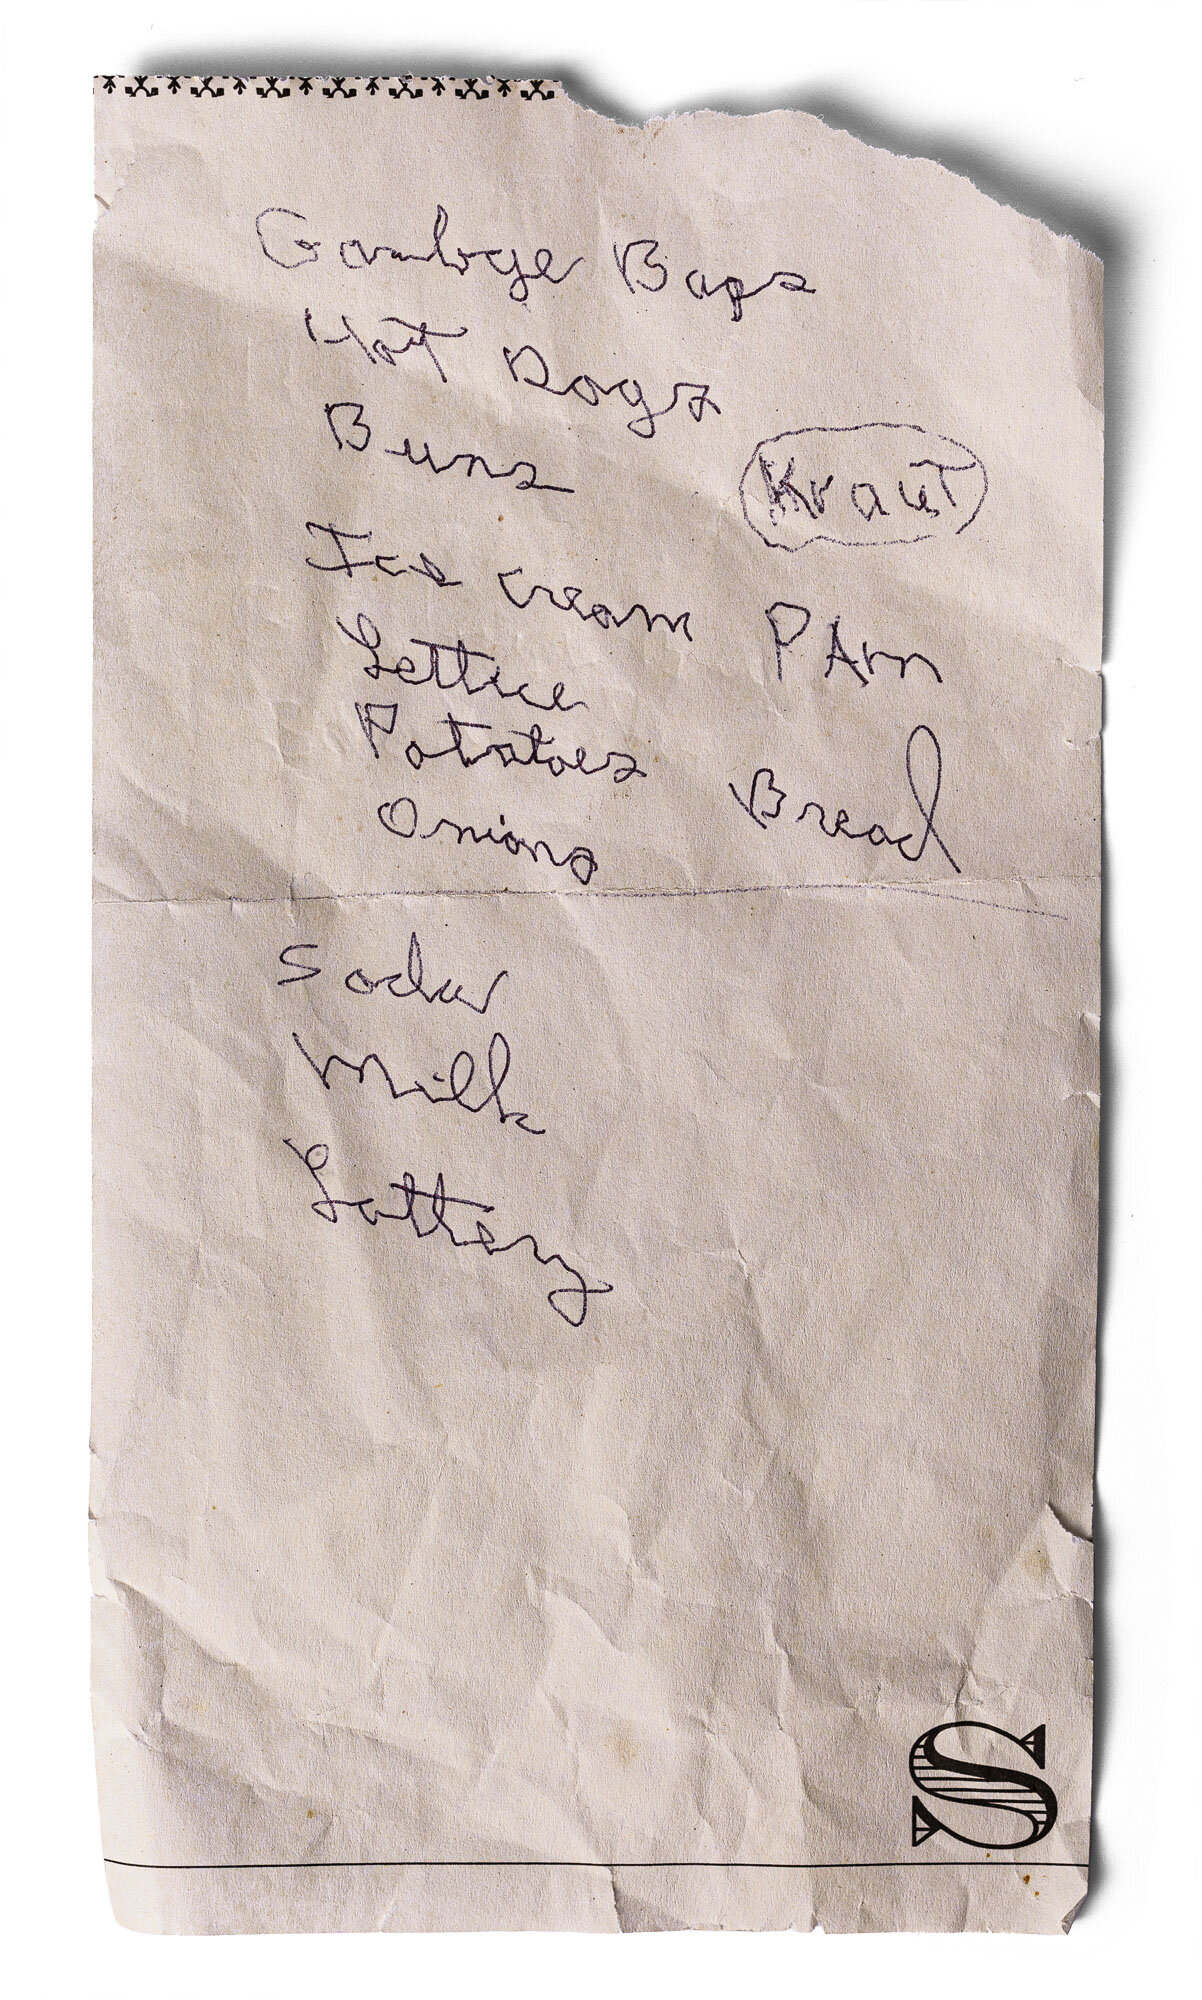 Garbage Bags
Hot Dogs
Buns
Kraut
Ice cream PArm
Lettuce
Potatoes
Bread
Onions
Soda
Milk
Lottery
S